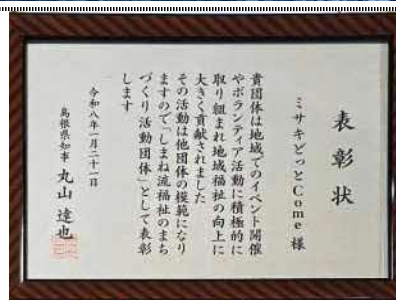 表彰状
ミサキどっとCome 様
貴団体は地域でのイベント開催
やボランティア活動に積極的に
取り組まれ地域福祉の向上に
大きく貢献されました
その活動は他団体の模範になり
ますので「しまね流福祉のまち
づくり活動団体」として表彰
します
令和八年一月二十一日
島根県知事 丸山 達也